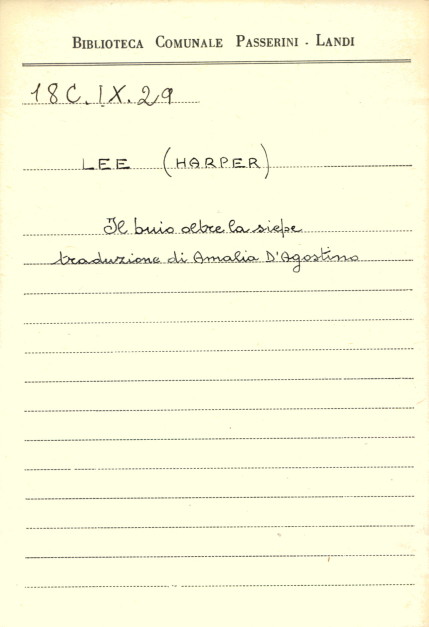 BIBLIOTECA COMUNALE PASSERINI - LANDI
18 C. IX. 29
LEE (HARPER)
Il buio oltre la siepe
traduzione di Amalia D'Agostino